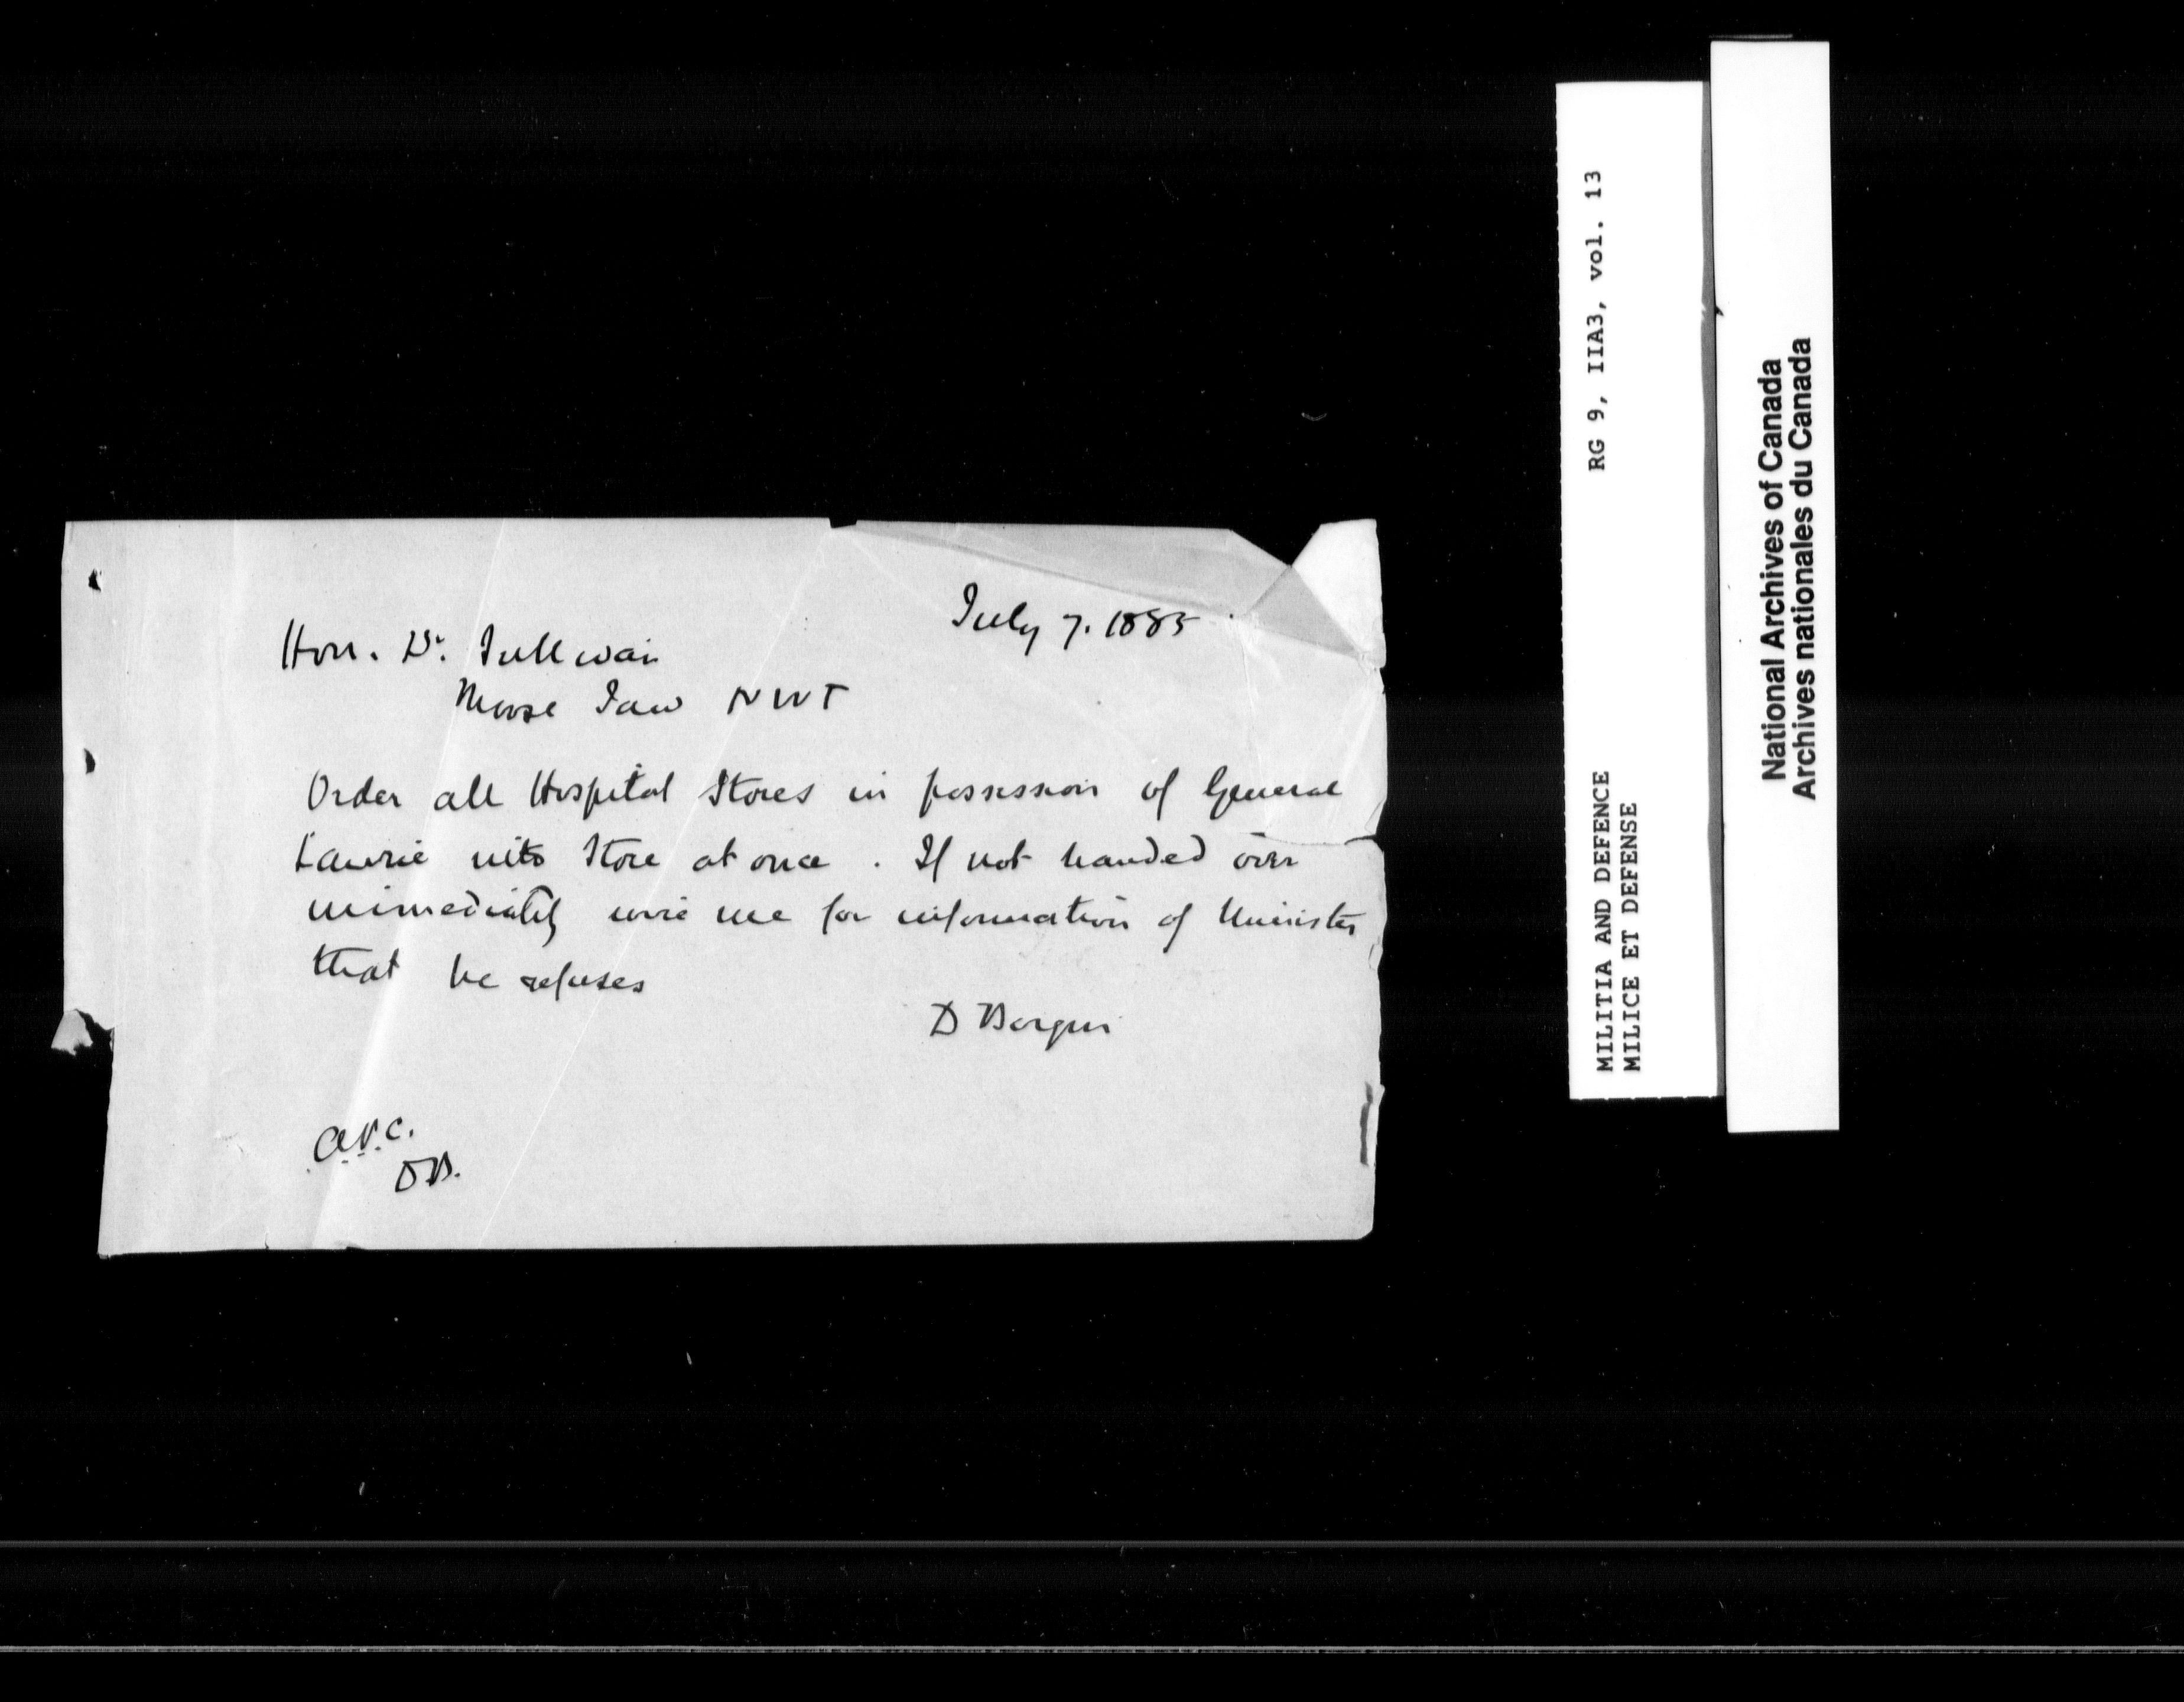 July 7. 1885
Hon. Dr. Sullivan
Moose Jaw NWT
Order all Hospital Stores in possession of General
Laurie into Store at once. If not handed over
immediately wire me for information of Minister
that he refuses
D Bergin
D.B.
RG 9, IIA3, vol. 13
MILITIA AND DEFENCE
MILICE ET DEFENSE
National Archives of Canada
Archives nationales du Canada